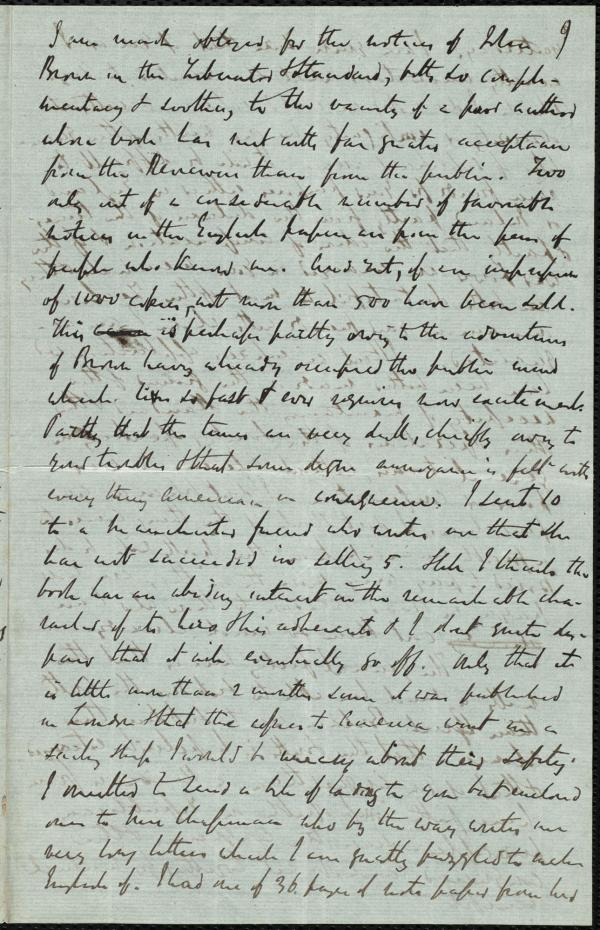 9
I am much obliged for the notices of John
Brown in the Liberator & Standard, both so compli-
mentary & soothing to the vanity of a poor author
whose book has met with far greater acceptance
from the Reviewers than from the public. Two
only out of a considerable number of favorable
notices in the English papers are from the pens of
people who know me. And yet, of an impression
of 1000 copies, not more than 500 have been sold.
This is perhaps partly owing to the adventures
of Brown having already occupied the public mind
which so fast & ever requires new excitement.
Partly that the times are very dull, chiefly owing to
your troubles & that some degree annoyance is felt with
every thing American in consequence. I sent 10
to a Manchester friend who writes me that she
has not succeeded in selling 5. Still I think the
book has an abiding interest in the remarkable cha-
racter of its hero & his adherents & I don't quite des-
pair that it will eventually go off. Only that it
is little more than 2 months since it was published
in London & that the copies to America went in a
sailing ship I would be uneasy about their safety.
I omitted to send a bill of lading to you but enclosed
one to Mrs Chapman who by the way writes me
very long letters which I am greatly puzzled to make
English of. I had one of 36 pages of note paper from her